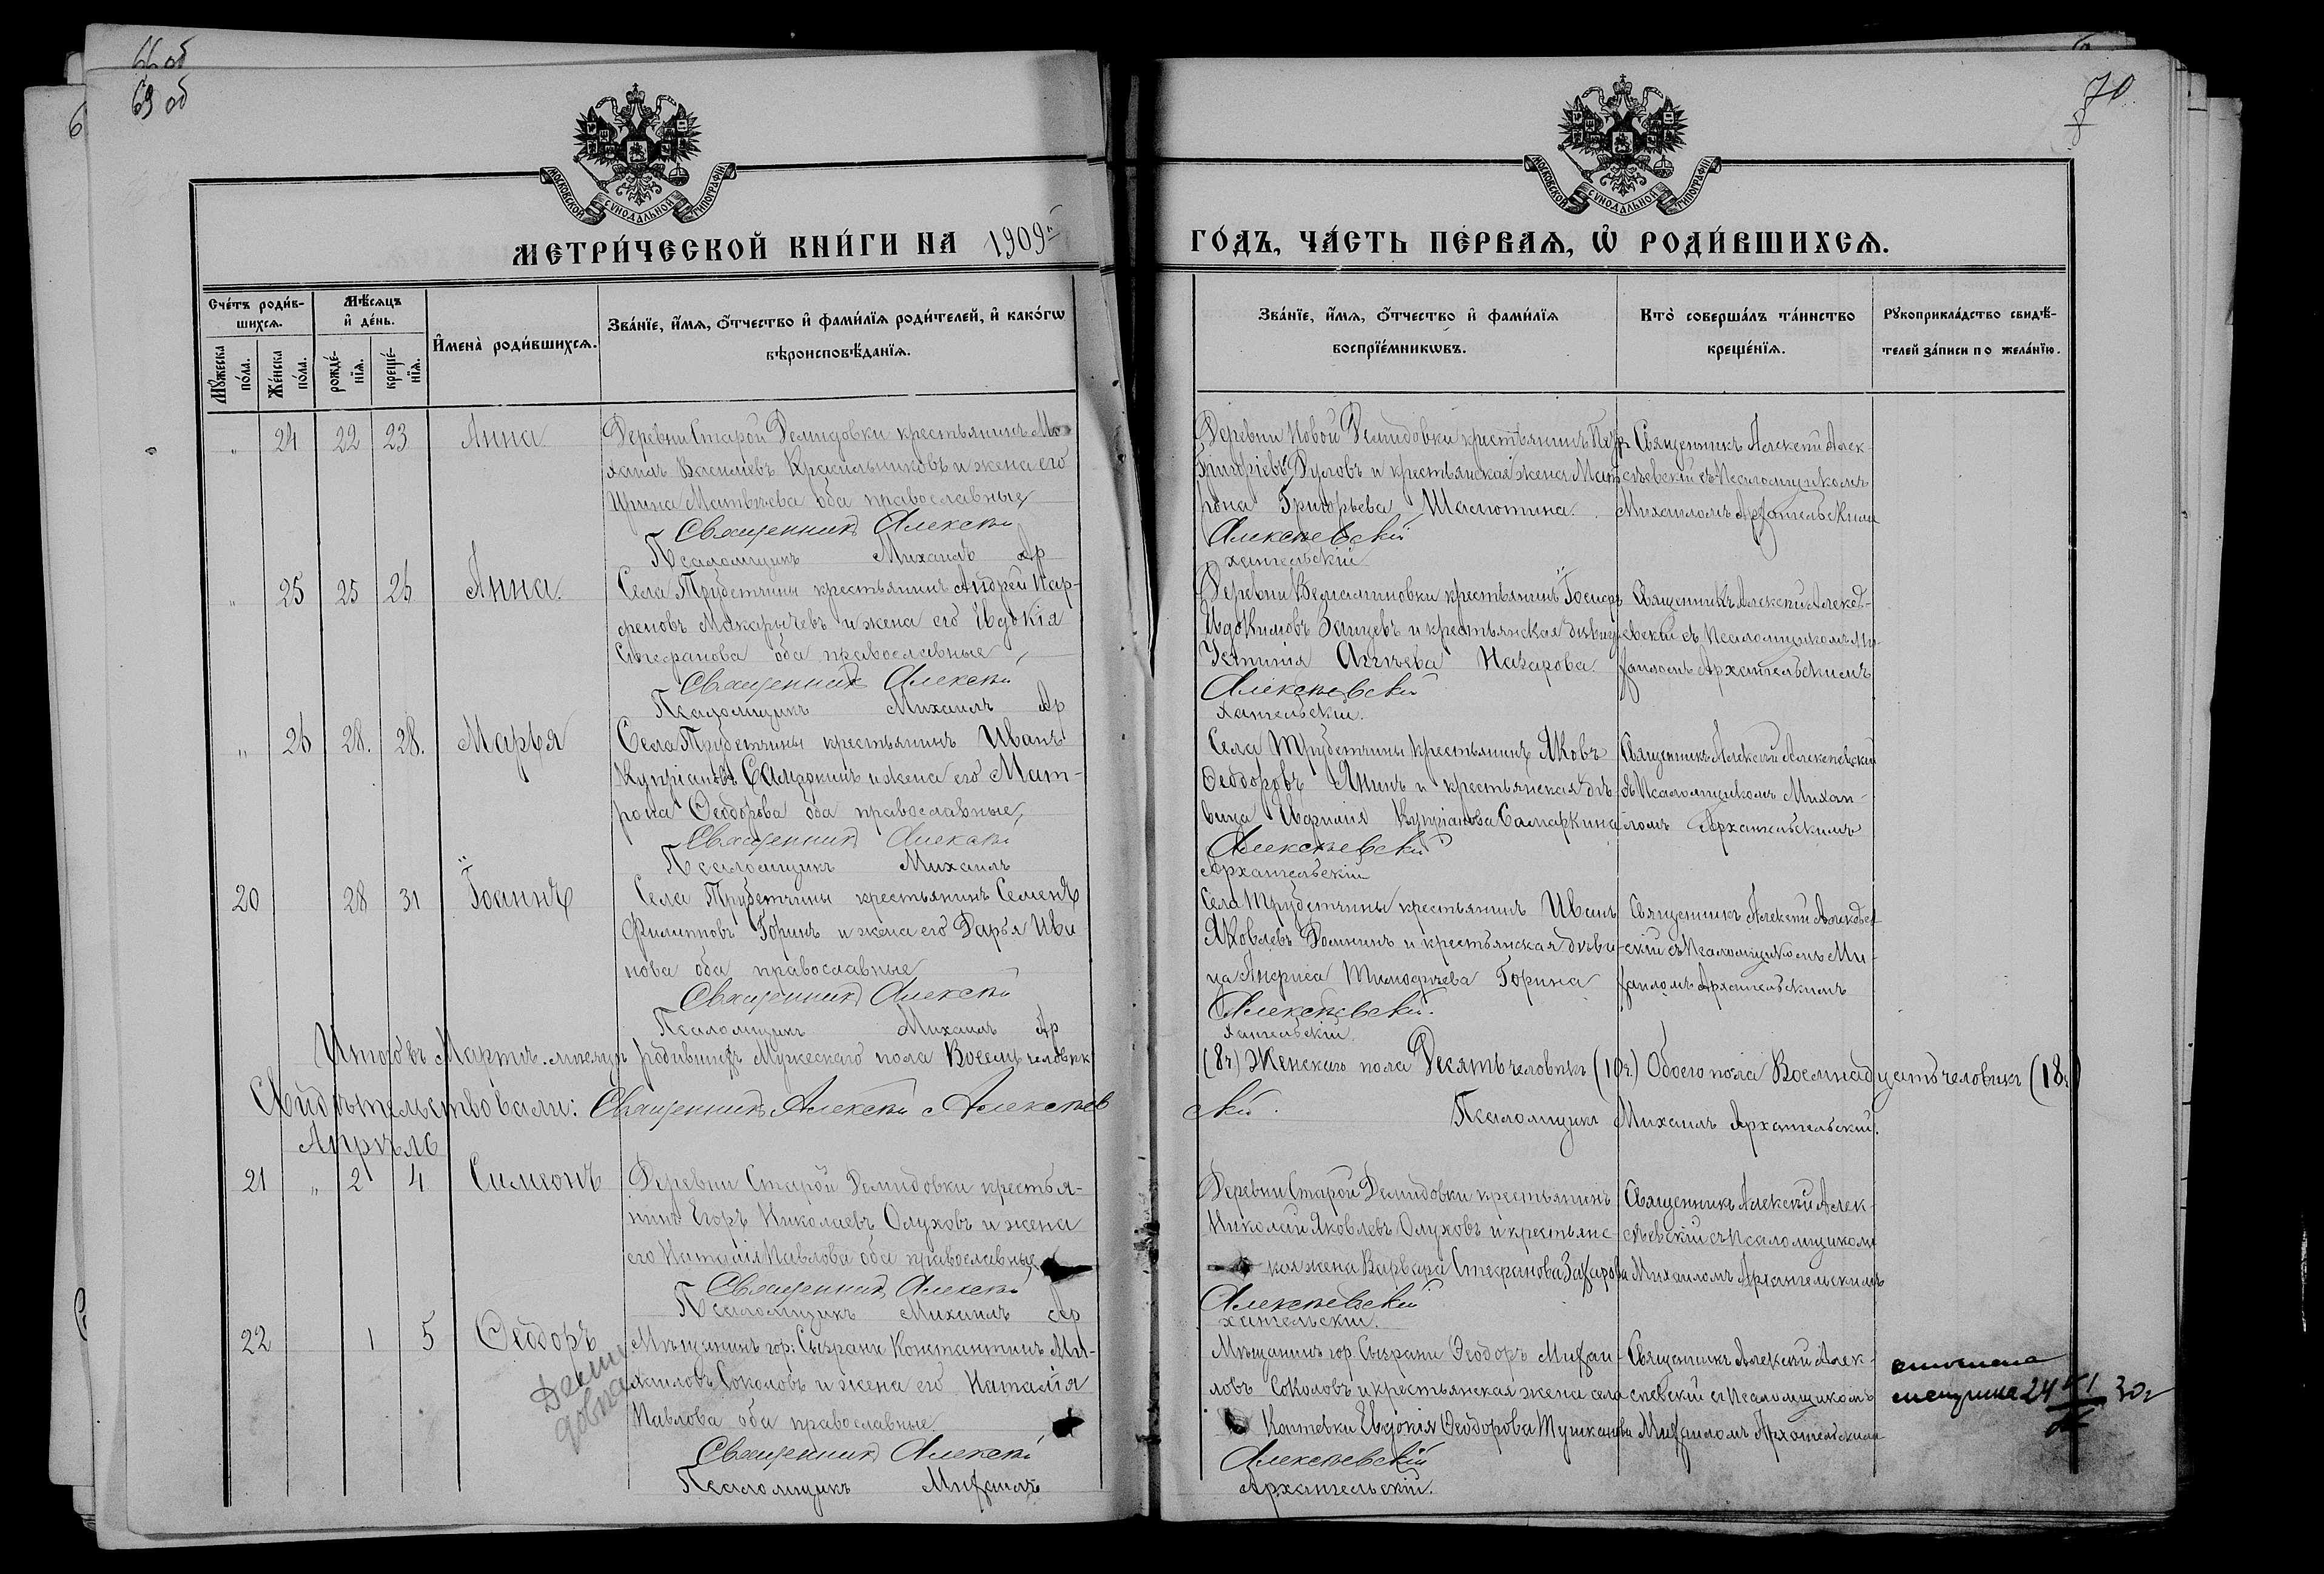 66 об
69 об
70
МОСКОВСКОЙ СѴНОДАЛЬНОЙ ТИПОГРАФІИ
МОСКОВСКОЙ СѴНОДАЛЬНОЙ ТИПОГРАФІИ
МЕТРИ́ЧЕСКОЙ КНИ́ГИ НА 1909й
ГО́ДЪ, ЧА́СТЬ ПЕ́РВАѦ, Ѡ РОДИ́ВШИХСѦ.
Счетъ родив-
шихсѧ.
Мꙋжеска пола.
Женска пола.
Мѣсѧцъ
и день.
рожде-
нїѧ.
креще-
нїѧ.
Имена родившихсѧ.
Званїе, имѧ, ѻтчество и фамилїѧ родителей, и какогѡ
вѣроисповѣданїѧ.
Званїе, имѧ, ѻтчество и фамилїѧ
воспрїемникѡвъ.
Кто совершалъ таинство
крещенїѧ.
Рꙋкоприкладство свидѣ-
телей записи по желанїю.
„ 24 22 23 Анна
Деревни Старой Демидовки крестьянинъ Ми
хаилъ Василиевъ Красильниковъ и жена его
Ирина Матвѣева оба православные
Священникъ Алексѣй
Псаломщикъ Михаилъ Ар
Деревни Новой Демидовки крестьянинъ Петръ
Григоріевъ Дуловъ и крестьянская жена Мат
рона Григорьева Шалютина.
Алексѣевскій
хангельскій
Священникъ Алексѣй Алек-
сѣевскій съ Псаломщикомъ
Михаиломъ Архангельскимъ
„ 25 25 26 Анна.
Села Трубетчины крестьянинъ Андрей Пар-
феновъ Макарычевъ и жена его Евдокія
Стефанова оба православные,
Священникъ Алексѣй
Псаломщикъ Михаилъ Ар
крестьянинъ Іосифъ
Евдокимовъ и крестьянская дѣвиц
Устинія Аггѣева Назарова.
Алексѣевскій
хангельскій.
Священникъ Алексѣй Алексѣ-
евскій съ Псаломщикомъ Ми-
хаиломъ Архангельскимъ
„ 26 28. 28. Марья
Села Трубетчины крестьянинъ Иванъ
Купріановъ Самаркинъ и жена его Мат-
рона Ѳеодорова оба православные,
Священникъ Алексѣй
Псаломщикъ Михаилъ
Села Трубетчины крестьянинъ Яковъ
Ѳеодоровъ Янинъ и крестьянская дѣ-
вица Купріанова Самаркина
Алексѣевскій
Архангельскій
Священникъ Алексѣй Алексѣевскій
съ Псаломщикомъ Михаи-
ломъ Архангельскимъ
20 28 31 Іоаннъ
Села Трубетчины крестьянинъ Семенъ
Филипповъ Горинъ и жена его Дарья Ива
нова оба православные
Священникъ Алексѣй
Псаломщикъ Михаилъ Ар
Села Трубетчины крестьянинъ Иванъ
Яковлевъ Доминъ и крестьянская дѣви-
ца Анфиса Тимофѣева Горина
Алексѣевскій.
хангельскій.
Священникъ Алексѣй Алексѣев
скій съ Псаломщикомъ Ми-
хаиломъ Архангельскимъ
Итого въ Мартѣ мѣсяцѣ родившихъ Мужескаго пола Восемь человѣкъ
(8ч.) Женскаго пола Десять человѣкъ (10ч.) Обоего пола Восемнадцать человѣкъ (18ч)
Свидѣтельствовали: Священникъ Алексѣй Алексѣев
скій. Псаломщикъ Михаилъ Архангельскій.
Апрѣль
21 „ 2 4 Симеонъ
Деревни Старой Демидовки крестья-
нинъ Егоръ Николаевъ Олуховъ и жена
его Наталія Павлова оба православные
Священникъ Алексѣй
Псаломщикъ Михаилъ Ар
Деревни Старой Демидовки крестьянинъ
Николай Яковлевъ Олуховъ и крестьянс-
кая жена Варвара Стефанова Захарова
Алексѣевскій
хангельскій.
Священникъ Алексѣй Алек-
сѣевскій съ Псаломщикомъ
Михаиломъ Архангельскимъ
22 1 5 Ѳеодоръ
Мѣщанинъ гор: Сызрани Константинъ Ми-
хаиловъ Соколовъ и жена его Наталія
Павлова оба православные
Священникъ Алексѣй
Псаломщикъ Михаилъ
Мѣщанинъ гор. Сызрани Ѳеодоръ Михаи-
ловъ Соколовъ и крестьянская жена села
Коптевки Евдокія Ѳеодорова Тушканова
Алексѣевскій
Архангельскій.
Священникъ Алексѣй Алек-
сѣевскій съ Псаломщикомъ
Михаиломъ Архангельскимъ
24 VI 30г